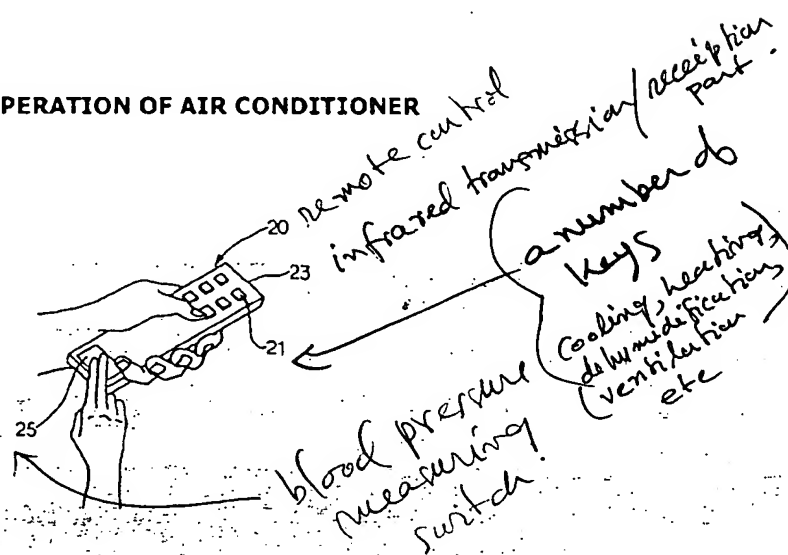 PERATION OF AIR CONDITIONER
20 remote control
23 infrared transmission/reception
part.
21 a number of
keys
(cooling, heating,
dehumidification,
ventilation
etc
25 blood pressure
measuring
switch.